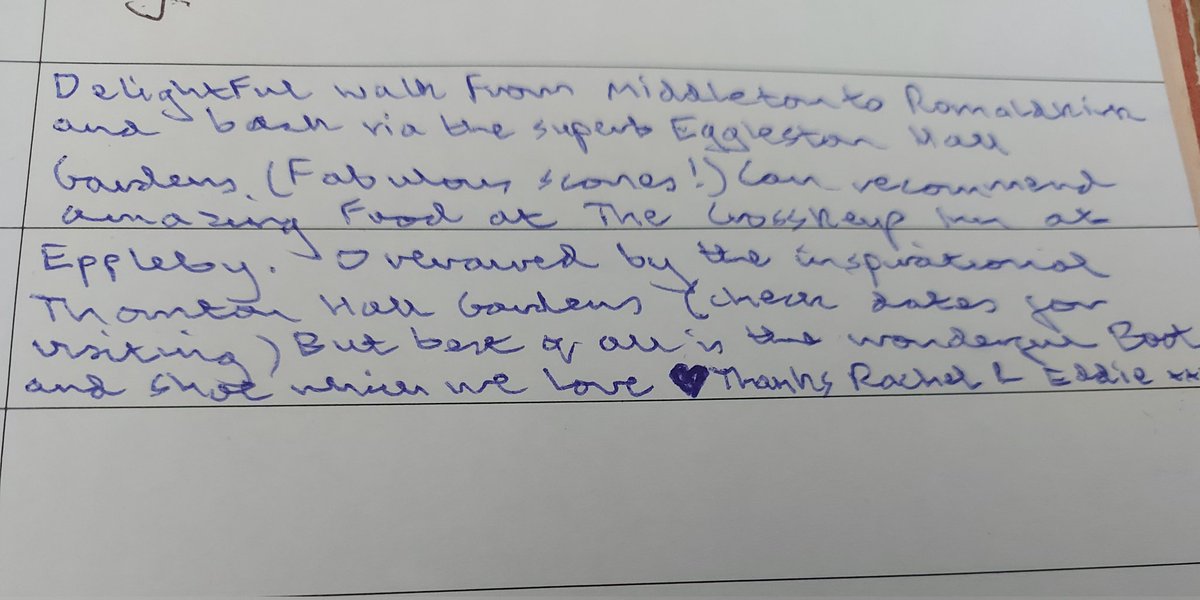 Delightful walk from Middleton to Romaldkirk
and back via the superb Eggleston Hall
Gardens. (Fabulous scones!) Can recommend
amazing Food at The Crosskeys Inn at
Eppleby. Overawed by the inspirational
Thornton Hall Gardens (check dates for
visiting) But best of all is the wonderful Boot
and Shoe which we love ♥ Thanks Rachel & Eddie xx